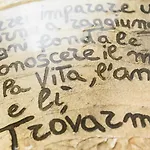 imparare
raggiun
fondale
onoscere il m
la Vita, l'am
e lì
Trovarm